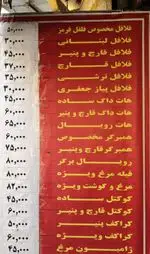 فلافل مخصوص فلفل قرمز ۵۰,۰۰۰
فلافل لبنانی ۳۰,۰۰۰
فلافل قارچ و پنیر ۴۵,۰۰۰
فلافل قارچ ۳۷,۰۰۰
فلافل ترشی ۳۵,۰۰۰
فلافل پیاز جعفری ۳۰,۰۰۰
هات داگ ساده ۴۵,۰۰۰
هات داگ قارچ و پنیر ۶۰,۰۰۰
هات رویال ۷۵,۰۰۰
همبرگر مخصوص ۶۰,۰۰۰
همبرگر قارچ و پنیر ۷۵,۰۰۰
رویال برگر ۸۰,۰۰۰
فیله مرغ ویژه ۸۰,۰۰۰
مرغ و گوشت ویژه ۸۲,۰۰۰
کوکتل ساده ۴۵,۰۰۰
کوکتل قارچ و پنیر ۶۰,۰۰۰
کراکف پنیر ۵۰,۰۰۰
کراکف ویژه ۶۰,۰۰۰
ژامبون مرغ ۴۵,۰۰۰